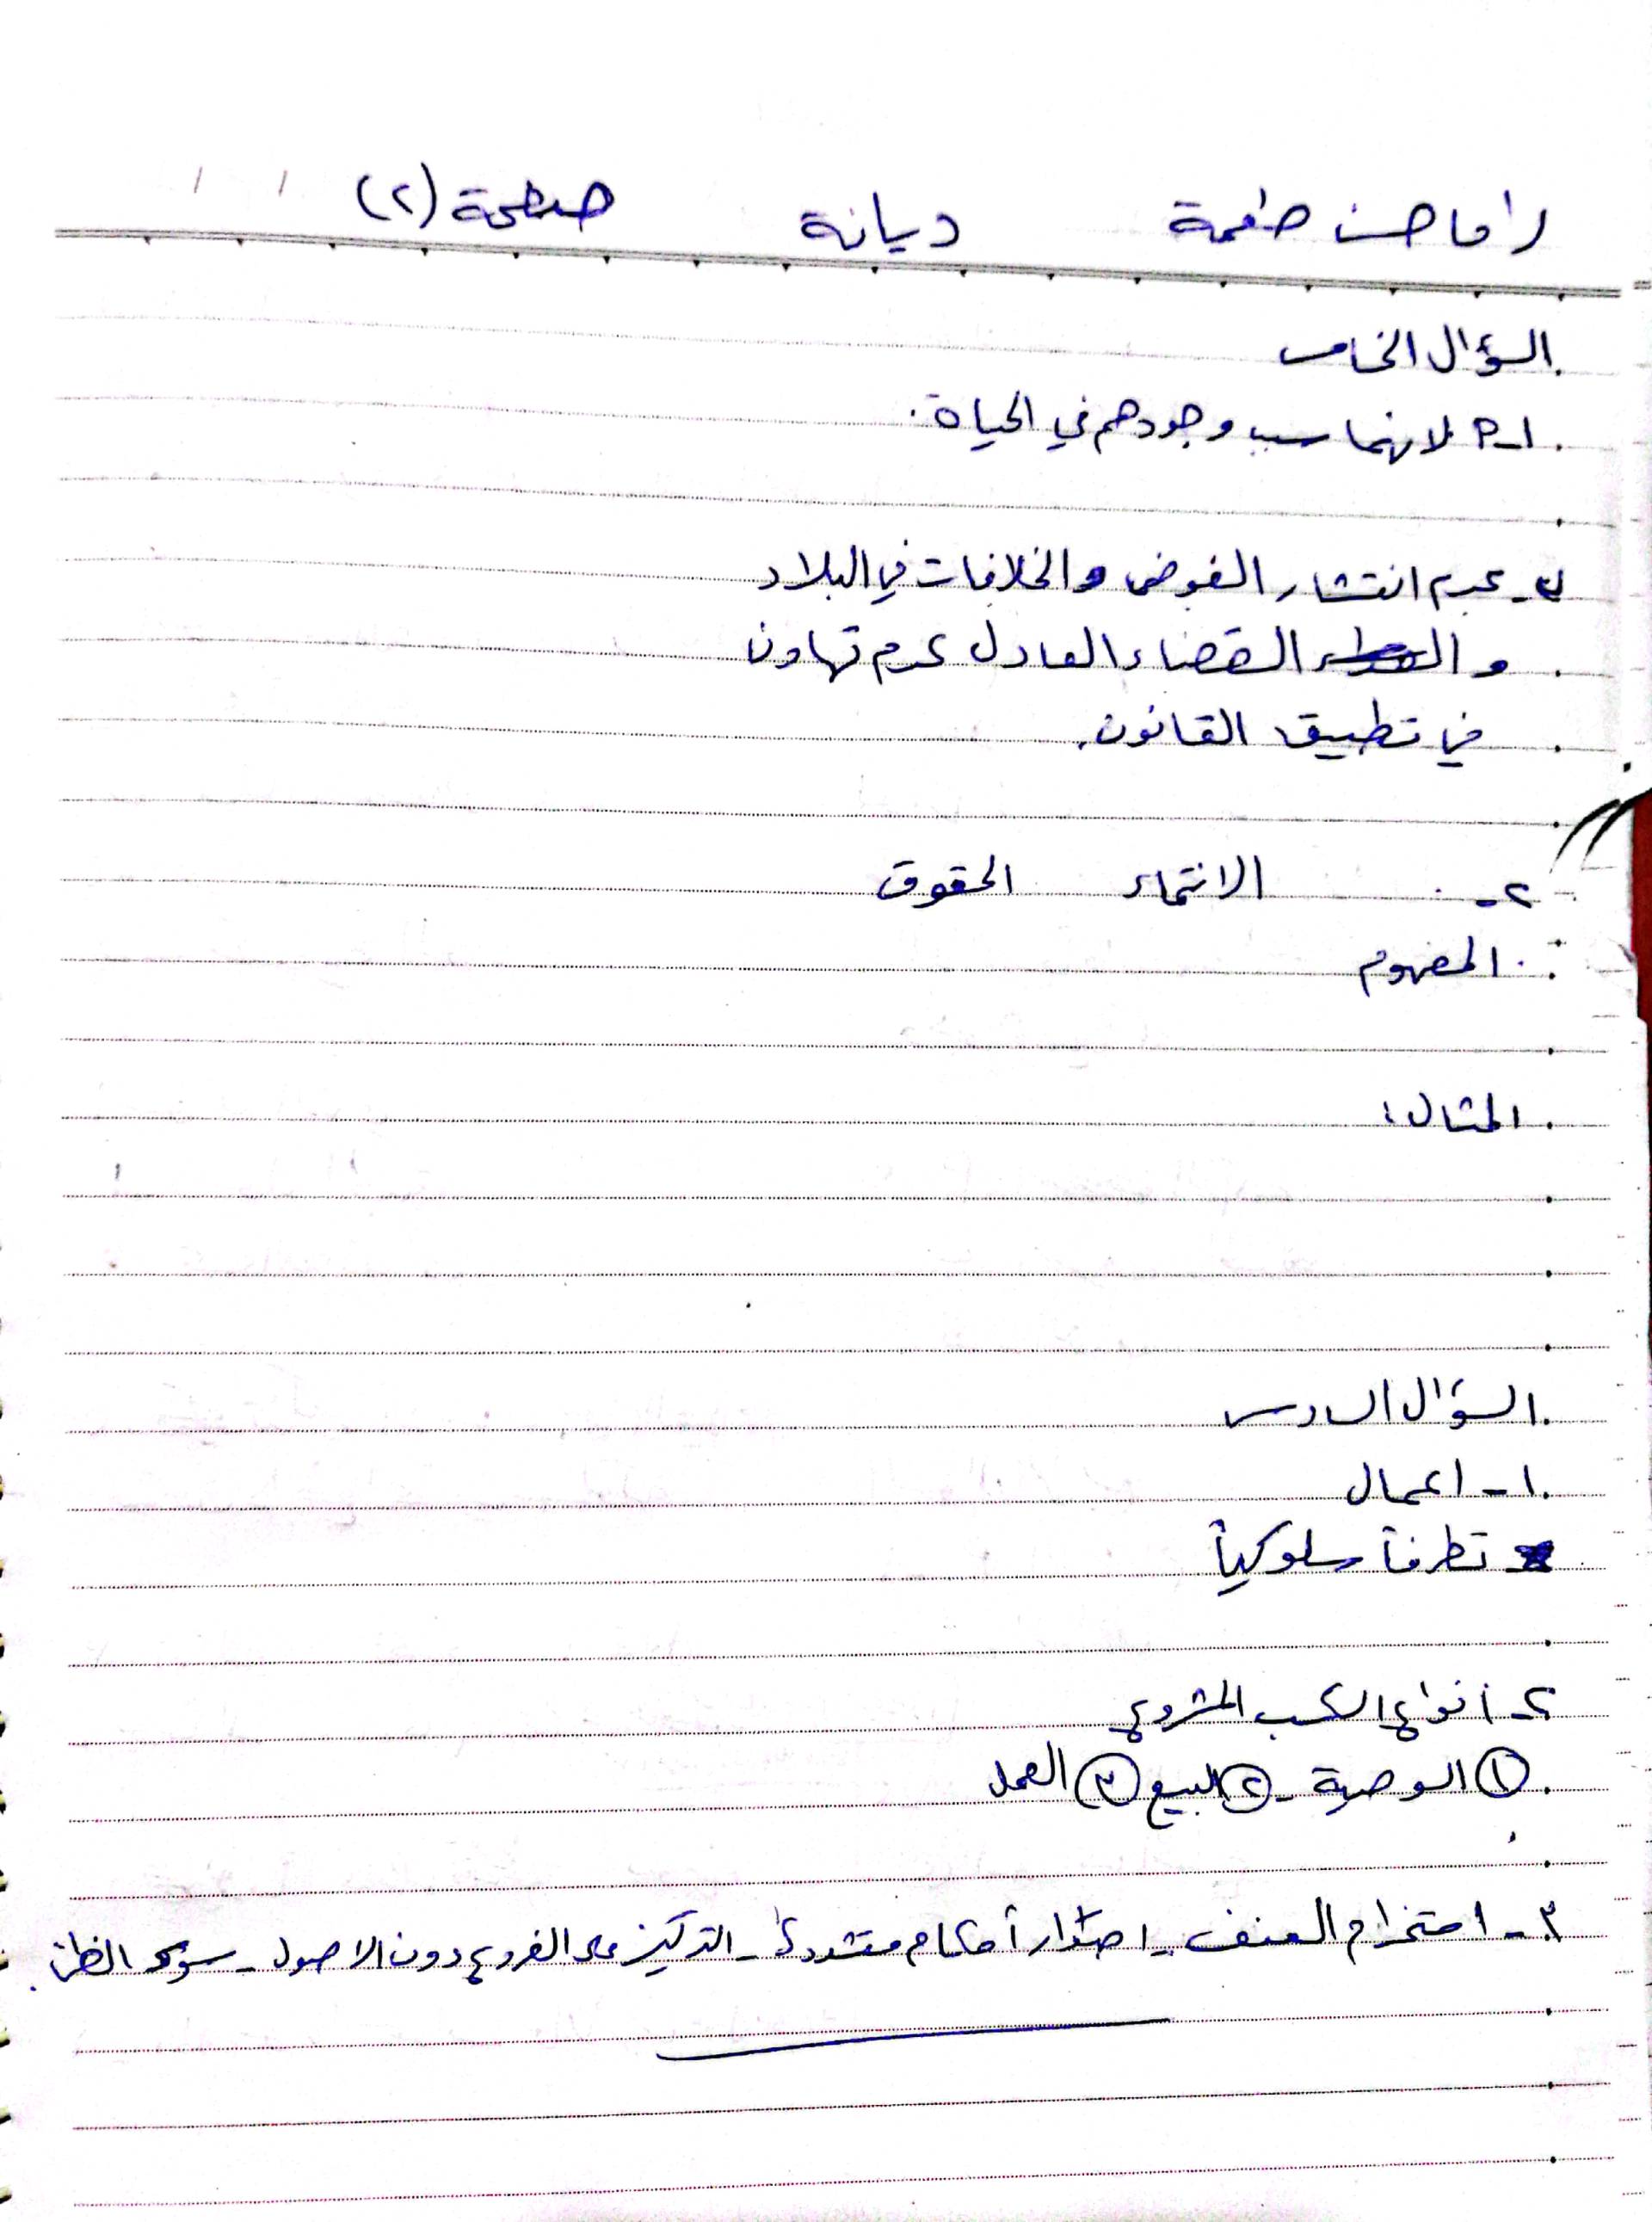 راما حسن طعمة ديانة صفحة (٢)
السؤال الخامس
١- P لانهما سبب وجودهم في الحياة.
ب- عدم انتشار الفوضى والخلافات في البلاد
و القضاء العادل عدم تهاون
في تطبيق القانون.
٢- الانتماء الحقوق
المفهوم
المثال:
السؤال السادس
١- اعمال
تطرفاً سلوكياً
٢- أنواع الكسب المشروع
① الوصية - ② البيع ③ العمل
٣- استخدام العنف - اصدار أحكام متشددة - التركيز على الفروع دون الاصول - سوء الظن.